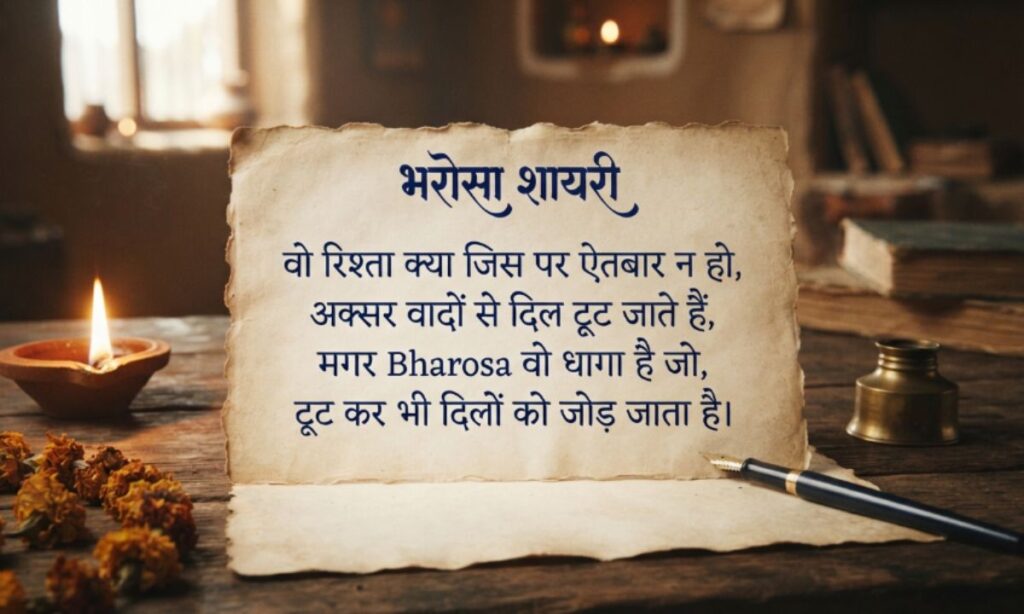 भरोसा शायरी
वो रिश्ता क्या जिस पर ऐतबार न हो,
अक्सर वादों से दिल टूट जाते हैं,
मगर Bharosa वो धागा है जो,
टूट कर भी दिलों को जोड़ जाता है।